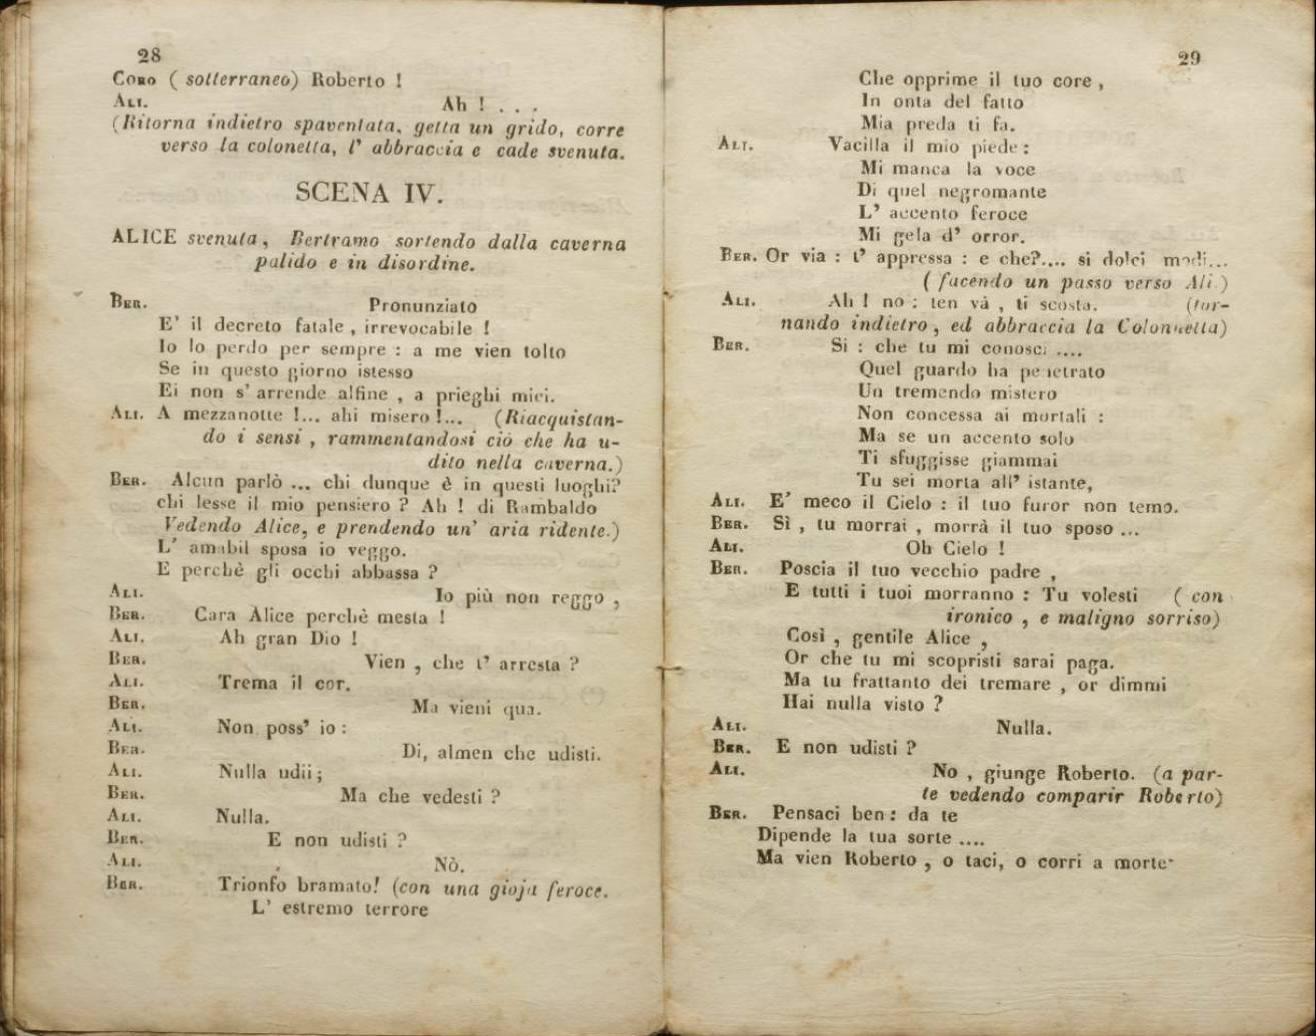 28
CORO ( sotterraneo) Roberto !
ALI. Ah ! . . .
(Ritorna indietro spaventata, getta un grido, corre
verso la colonetta, l' abbraccia e cade svenuta.
SCENA IV.
ALICE svenuta, Bertramo sortendo dalla caverna
palido e in disordine.
BER. Pronunziato
E' il decreto fatale , irrevocabile !
Io lo perdo per sempre : a me vien tolto
Se in questo giorno istesso
Ei non s' arrende alfine , a prieghi miei.
ALI. A mezzanotte !... ahi misero !... (Riacquistan-
do i sensi , rammentandosi ciò che ha u-
dito nella caverna.)
BER. Alcun parlò ... chi dunque è in questi luoghi?
chi lesse il mio pensiero ? Ah ! di Rambaldo
Vedendo Alice, e prendendo un' aria ridente.)
L' amabil sposa io veggo.
E perchè gli occhi abbassa ?
ALI. Io più non reggo ,
BER. Cara Alice perchè mesta !
ALI. Ah gran Dio !
BER. Vien , che t' arresta ?
ALI. Trema il cor.
BER. Ma vieni qua.
ALI. Non poss' io :
BER. Di, almen che udisti.
ALI. Nulla udii ;
BER. Ma che vedesti ?
ALI. Nulla.
BER. E non udisti ?
ALI. Nò.
BER. Trionfo bramato! (con una gioja feroce.
L' estremo terrore
29
Che opprime il tuo core ,
In onta del fatto
Mia preda ti fa.
ALI. Vacilla il mio piede :
Mi manca la voce
Di quel negromante
L' accento feroce
Mi gela d' orror.
BER. Or via : t' appressa : e che?.... si dolci modi...
( facendo un passo verso Ali.)
ALI. Ah ! no : ten và , ti scosta. (tor-
nando indietro , ed abbraccia la Colonnetta)
BER. Si : che tu mi conosci ....
Quel guardo ha penetrato
Un tremendo mistero
Non concessa ai mortali :
Ma se un accento solo
Ti sfuggisse giammai
Tu sei morta all' istante,
ALI. E' meco il Cielo : il tuo furor non temo.
BER. Sì , tu morrai , morrà il tuo sposo ...
ALI. Oh Cielo !
BER. Poscia il tuo vecchio padre ,
E tutti i tuoi morranno : Tu volesti ( con
ironico , e maligno sorriso)
Così , gentile Alice ,
Or che tu mi scopristi sarai paga.
Ma tu frattanto dei tremare , or dimmi
Hai nulla visto ?
ALI. Nulla.
BER. E non udisti ?
ALI. No , giunge Roberto. (a par-
te vedendo comparir Roberto)
BER. Pensaci ben : da te
Dipende la tua sorte ....
Ma vien Roberto , o taci, o corri a morte